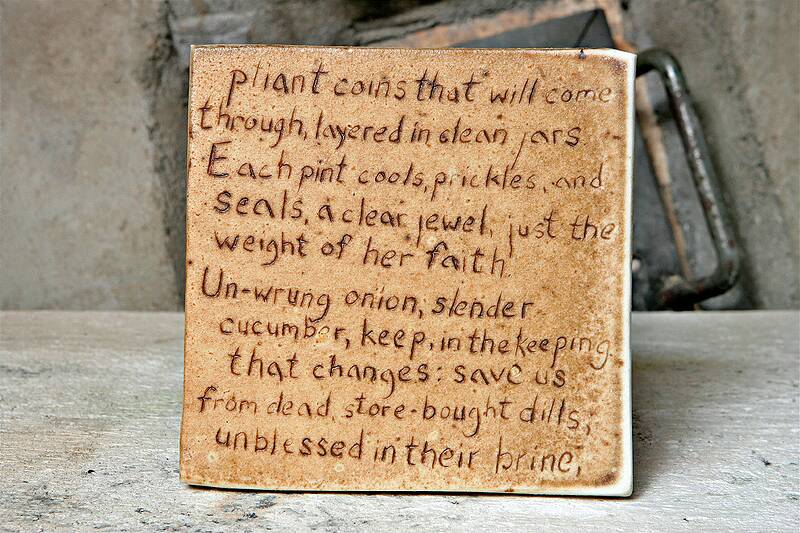 pliant coins that will come
through, layered in clean jars
Each pint cools, prickles, and
seals, a clear jewel, just the
weight of her faith.
Un-wrung onion, slender
cucumber, keep, in the keeping
that changes: save us
from dead, store-bought dills,
unblessed in their brine,